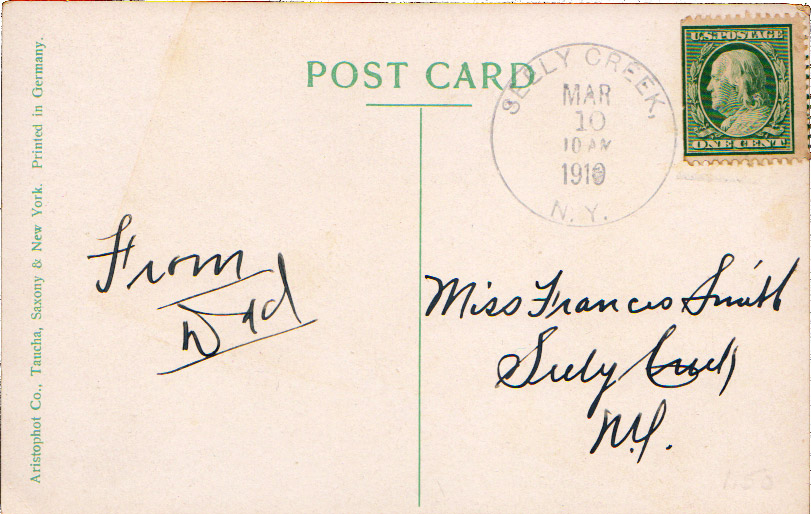 POST CARD
SEELY CREEK,
MAR
10
10 AM
1910
N. Y.
U.S. POSTAGE
ONE CENT
Aristophot Co., Taucha, Saxony & New York. Printed in Germany.
From
Dad
Miss Francis Smith
Seely Creek
N.Y.